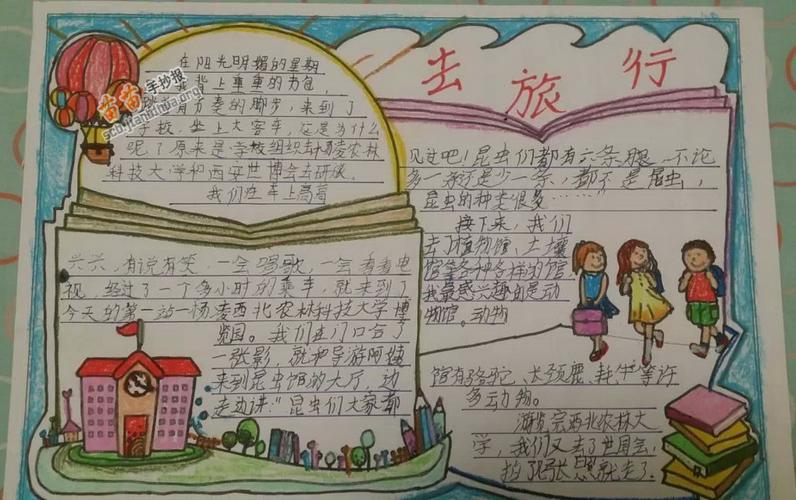 去旅行
苗苗手抄报
在阳光明媚的星期
背上重重的书包，
的脚步，来到了
学校，坐上大客车，这是为什么
呢？原来是学校组织去杨凌农林
科技大学和西安世博会去研游。
我们在车上高高
兴兴，有说有笑，一会唱歌，一会看看电
视，经过了一个多小时的乘车，就来到了
今天的第一站—杨凌西北农林科技大学博
览园。我们在门口合了
一张影，就和导游阿姨
来到昆虫馆的大厅，边
走边讲：“昆虫们大家都
见过吧！昆虫们都有六条腿，不论
多一条还是少一条，都不是昆虫，
昆虫的种类很多……”
接下来，我们
去了植物馆、土壤
馆等各种各样的馆，
我最感兴趣的是动
物馆。动物
馆有骆驼、长颈鹿、牦牛等许
多动物。
游览完西北农林大
学，我们又去了世园会，
拍张就走了.